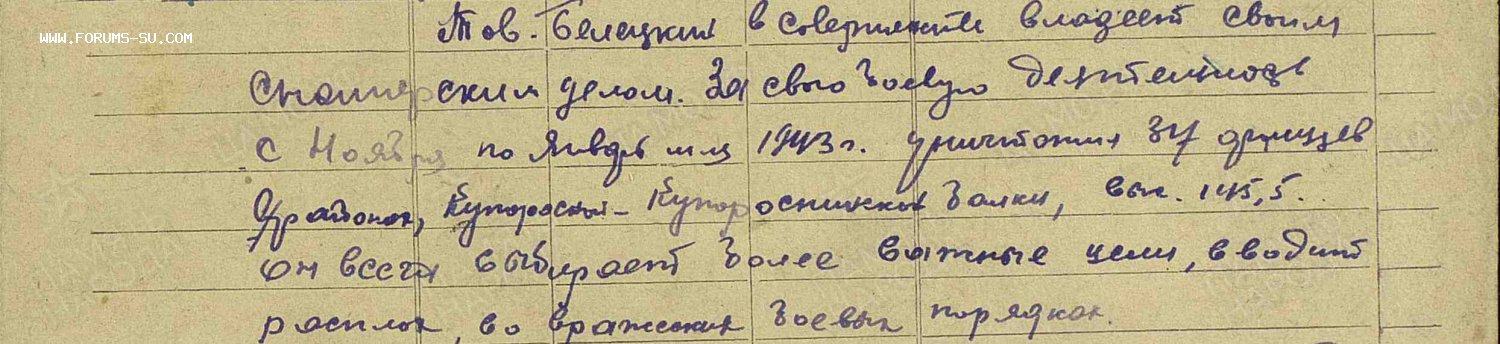 WWW.FORUMS-SU.COM
Тов. Белецкий в совершенстве владеет своим
снайперским делом. За свою боевую деятельность
с Ноября по Январь м-ц 1943 г. уничтожил 37 фрицев
в районах, Купоросной - Купоросницкой балки, выс. 145,5.
Он всегда выбирает более важные цели, вводит
расплох, во вражеских боевых порядках.